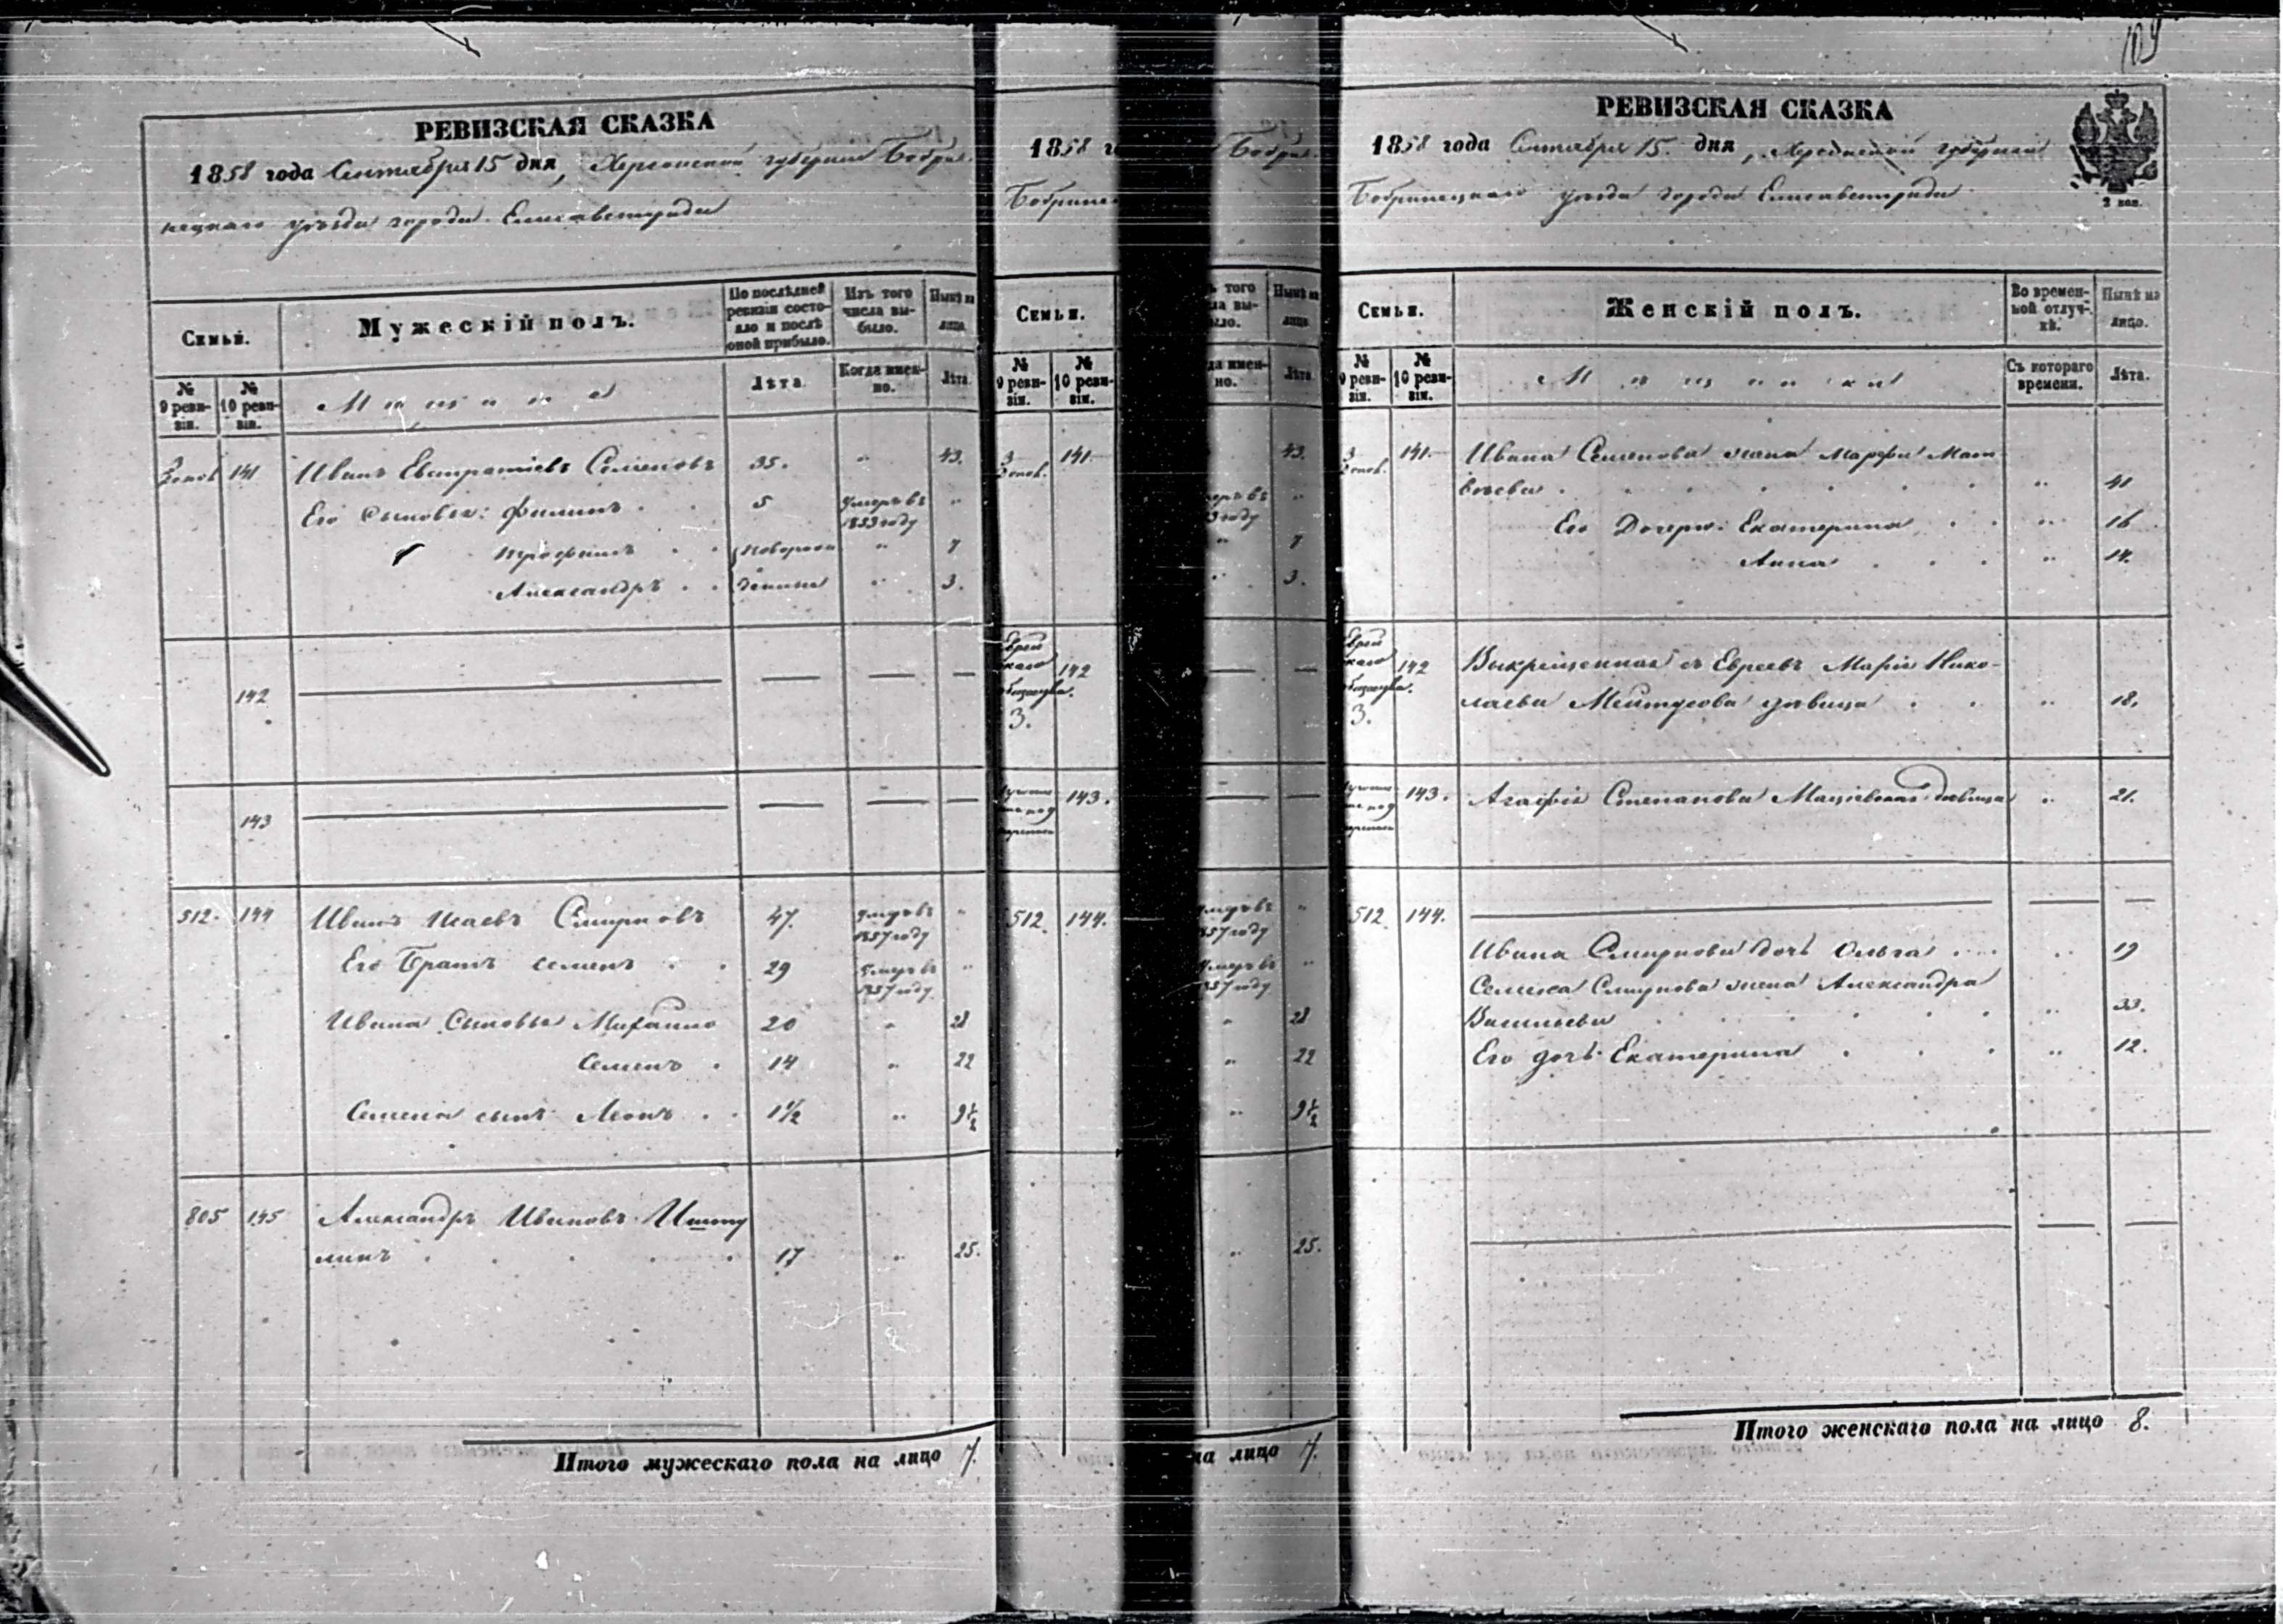 109
РЕВИЗСКАЯ СКАЗКА
1858 года Сентября 15 дня, Херсонской губернiи Бобри-
нецкаго уѣзда города Елисаветграда
Семьи.
Мужескiй полъ.
По послѣдней ревизiи состояло и послѣ оной прибыло.
Изъ того числа выбыло.
Нынѣ на лицо
№ 9 ревизiи.
№ 10 ревизiи.
Мѣщане
Лѣта
Когда именно.
Лѣта
3 141 Иванъ Евстратiевъ Семеновъ 35. " 43.
Его сыновья: Филипъ . . 5 Умеръ въ 1853 году "
Трофимъ . . новорож " 7
Александръ . . денные " 3.
142
143
512. 144 Иванъ Исаевъ Смирновъ 47. Умеръ въ 1857 году "
Его Братъ Семенъ . . 29 Умеръ въ 1857 году "
Ивана Сыновья Михайло 20 " 28
Семенъ . 14 " 22
Семена сынъ Леонъ . . 1½ " 9½
805 145 Александръ Ивановъ Ишту
линъ . . . . . 17 " 25.
Итого мужескаго пола на лицо 7.
1858 г
Бобрине
Семьи.
№ 9 ревизiи.
№ 10 ревизiи.
3 141
142
3.
143.
512. 144.
Бобри-
того
ла вы-
ыло.
Нынѣ на лицо
да имен-
но.
Лѣта
43.
7
3.
28
22
9½
25.
на лицо 7.
РЕВИЗСКАЯ СКАЗКА
1858 года Сентября 15. дня, Херсонской губернiи
Бобринецкаго уѣзда города Елисаветграда
2 коп.
Семьи.
Женскiй полъ.
Во временной отлучкѣ.
Нынѣ на лицо.
№ 9 ревизiи.
№ 10 ревизiи.
Мѣщанки
Съ котораго времени.
Лѣта.
3 141. Ивана Семенова жена Марфа Мат
вѣева . . . . . . . " 41
Его Дочери: Екатерина . . " 16
Анна . . . " 14.
142 Выкрещенная съ Евреевъ Марiя Нико-
3. лаева дѣвица . . " 18.
143. Агафiя Степанова дѣвица " 21.
512 144.
Ивана Смирнова дочь Ольга . . . " 19
Семена Смирнова жена Александра
Васильева . . . . . . " 33.
Его дочь Екатерина . . . " 12.
Итого женскаго пола на лицо 8.